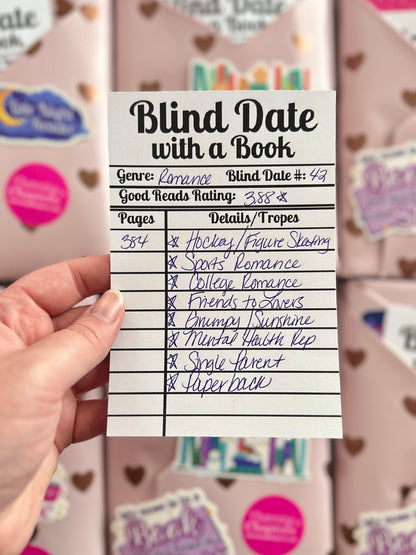 Blind Date
Blind Date
with a Book
Genre: Romance Blind Date #: 42
Good Reads Rating: 3.88 ☆
Pages Details/Tropes
384 ☆ Hockey/Figure Skating
☆ Sports Romance
☆ College Romance
☆ Friends to Lovers
☆ Grumpy/Sunshine
☆ Mental Health Rep
☆ Single Parent
☆ Paperback
Book
Book